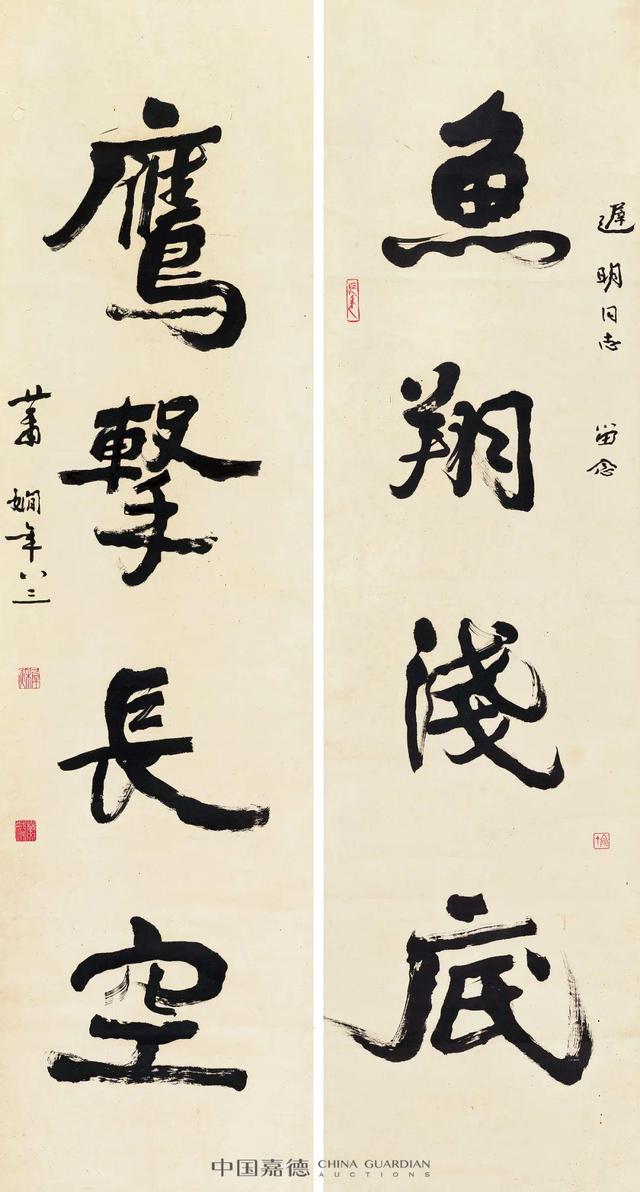 遲明同志 留念
魚翔淺底
鷹擊長空
蕭嫻年八三
中国嘉德 CHINA GUARDIAN
AUCTIONS